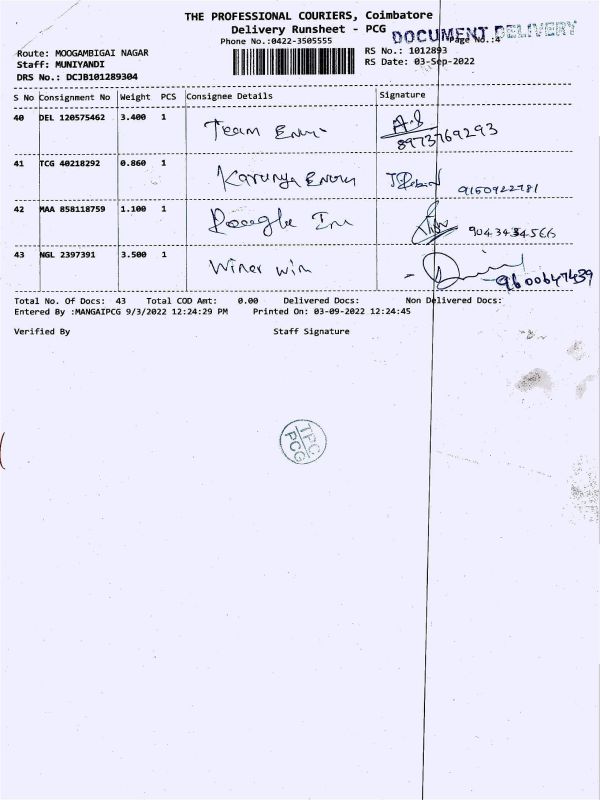 THE PROFESSIONAL COURIERS, Coimbatore
Delivery Runsheet - PCG
DOCUMENT DELIVERY
Phone No.:0422-3505555
Page No.:4
Route: MOOGAMBIGAI NAGAR
RS No.: 1012893
Staff: MUNIYANDI
RS Date: 03-Sep-2022
DRS No.: DCJB101289304
S No Consignment No Weight PCS Consignee Details Signature
40 DEL 120575462 3.400 1 Team A.S
8973769293
41 TCG 40218292 0.860 1 Karunya 9150922781
42 MAA 858118759 1.100 1 9043434566
43 NGL 2397391 3.500 1 Winer win 9600647439
Total No. Of Docs: 43 Total COD Amt: 0.00 Delivered Docs: Non Delivered Docs:
Entered By :MANGAIPCG 9/3/2022 12:24:29 PM Printed On: 03-09-2022 12:24:45
Verified By Staff Signature
TPC
PCG